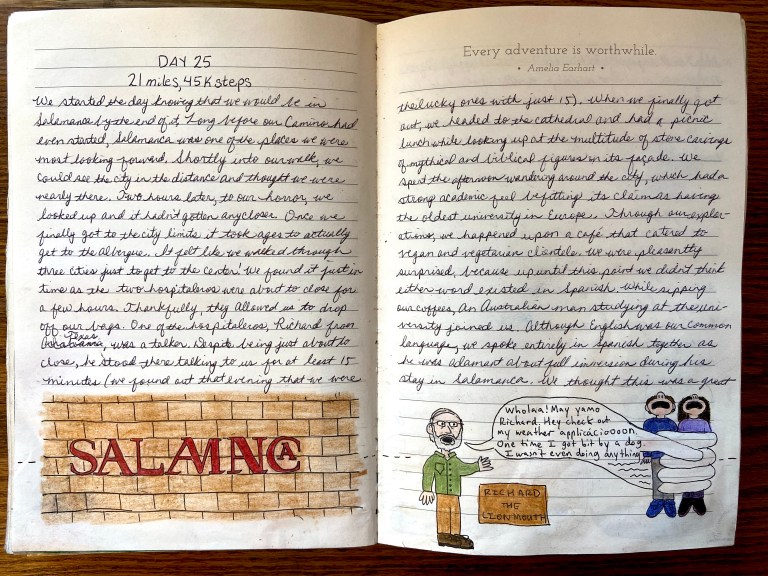 DAY 25
21 miles, 45K steps
We started the day knowing that we would be in
Salamanca by the end of it. Long before our Camino had
even started, Salamanca was one of the places we were
most looking forward. Shortly into our walk, we
could see the city in the distance and thought we were
nearly there. Two hours later, to our horror, we
looked up and it hadn't gotten any closer. Once we
finally got to the city limits it took ages to actually
get to the Albergue. It felt like we walked through
three cities just to get to the Center! We found it just in
time as the two hospitaleros were about to close for
a few hours. Thankfully, they allowed us to drop
off our bags. One of the hospitaleros, Richard from
Texas, was a talker. Despite being just about to
close, he stood there talking to us for at least 15
minutes (we found out that evening that we were
SALAMNCA
Every adventure is worthwhile.
• Amelia Earhart •
the lucky ones with just 15). When we finally got
out, we headed to the cathedral and had a picnic
lunch while looking up at the multitude of stone carvings
of mythical and biblical figures on its façade. We
spent the afternoon wandering around the city, which had a
strong academic feel befitting its claim as having
the oldest university in Europe. Through our explor-
ations, we happened upon a café that catered to
vegan and vegetarian clientele. We were pleasantly
surprised, because up until this point we didn't think
either word existed in Spanish. While sipping
our coffees, An Australian man studying at the uni-
versity joined us. Although English was our common
language, we spoke entirely in Spanish together as
he was adamant about full immersion during his
stay in Salamanca. We thought this was a great
Wholaa! May yamo
Richard. Hey check out
my weather applicácioooon.
One time I got bit by a dog.
I wasn't even doing anything
RICHARD
THE
LION MOUTH